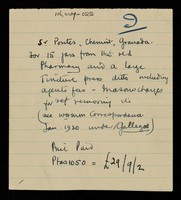 Sr Pontes, Chemist, Granada.
For 15 jars from the old
Pharmacy and a large
Tincture press ditto including
agents fees - Mason charges
for removing etc
(see Western Correspondence
Jan 1930 under Gallegos)
Price Paid
Ptas 1050 = £29/9/2